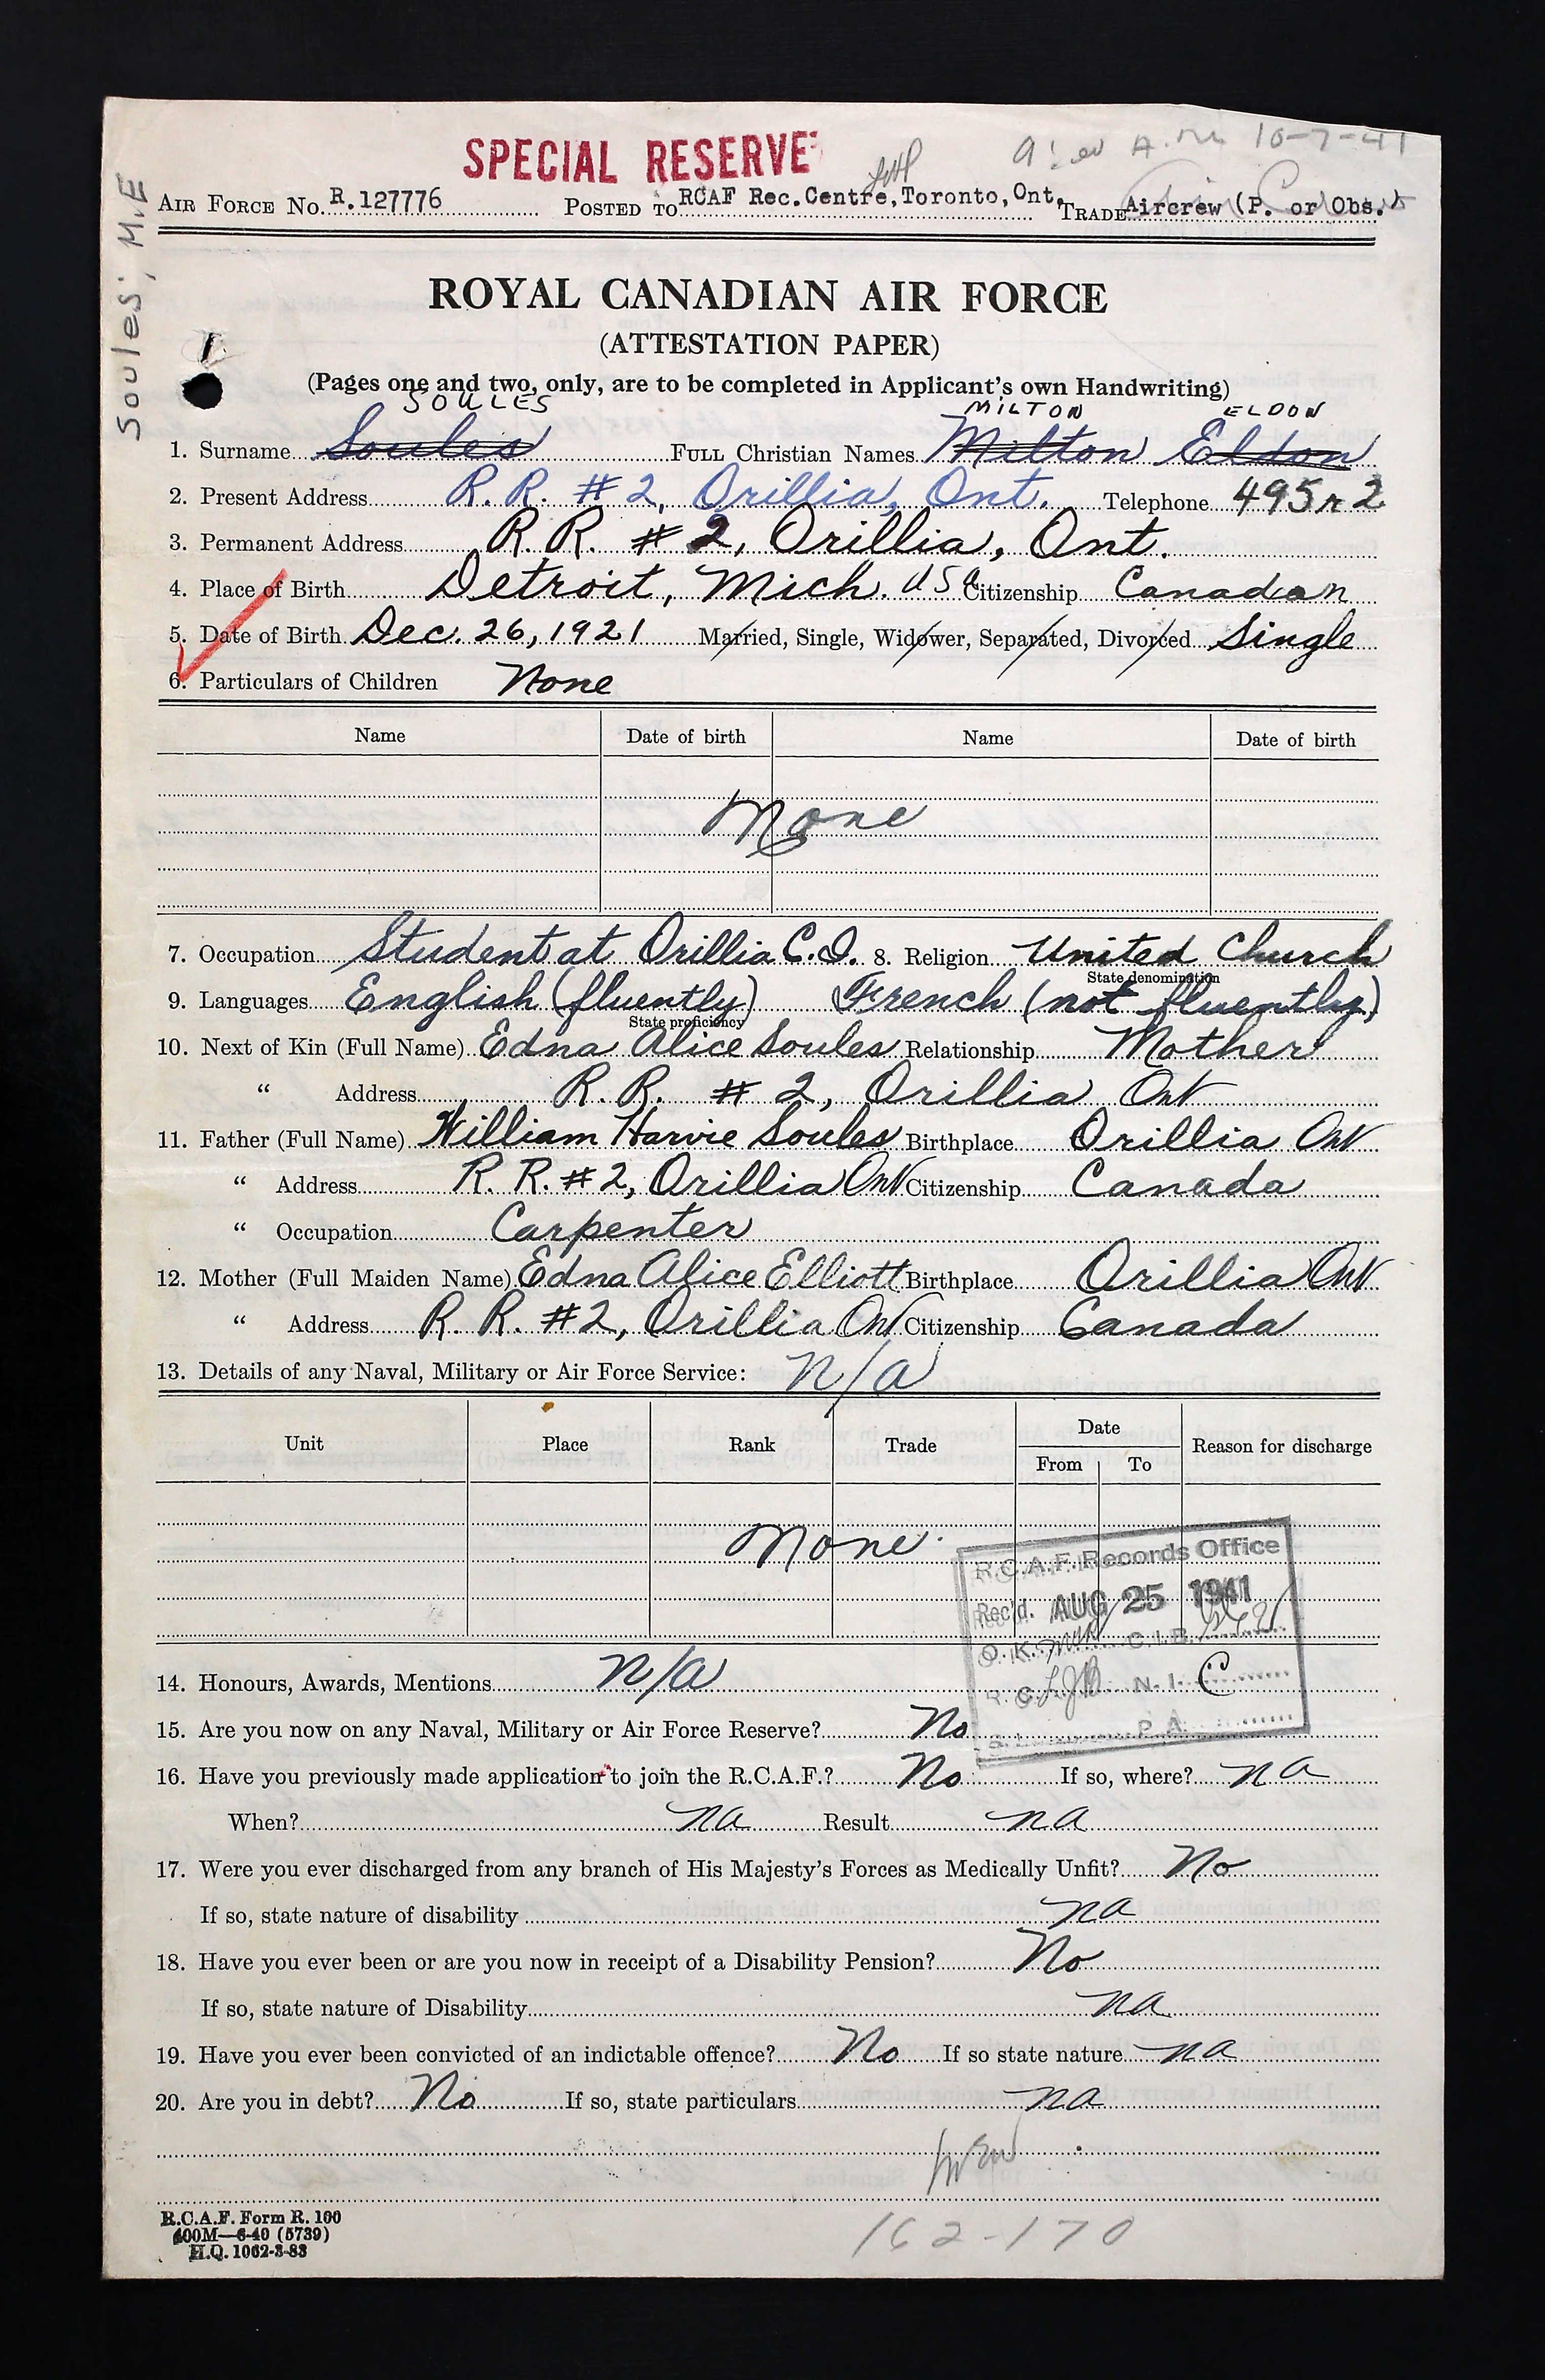 SPECIAL RESERVE
10-7-41
AIR FORCE No. R.127776 POSTED TO RCAF Rec.Centre,Toronto,Ont, TRADE Aircrew (P. or Obs.)
Soules, M.E
ROYAL CANADIAN AIR FORCE
(ATTESTATION PAPER)
(Pages one and two, only, are to be completed in Applicant's own Handwriting)
SOULES MILTON ELDON
1. Surname Soules FULL Christian Names Milton Eldon
2. Present Address R. R. #2, Orillia, Ont. Telephone 495 r 2
3. Permanent Address R. R. #2, Orillia, Ont.
4. Place of Birth Detroit, Mich. USA Citizenship Canadian
5. Date of Birth Dec. 26, 1921 Married, Single, Widower, Separated, Divorced Single
6. Particulars of Children None
Name Date of birth Name Date of birth
None
7. Occupation Student at Orillia C.I. 8. Religion United Church
State denomination
9. Languages English (fluently) French (not fluently)
State proficiency
10. Next of Kin (Full Name) Edna Alice Soules Relationship Mother
" Address R. R. #2, Orillia Ont
11. Father (Full Name) William Harvie Soules Birthplace Orillia Ont
" Address R. R. #2, Orillia Ont Citizenship Canada
" Occupation Carpenter
12. Mother (Full Maiden Name) Edna Alice Elliott Birthplace Orillia Ont
" Address R. R. #2, Orillia Ont Citizenship Canada
13. Details of any Naval, Military or Air Force Service: n/a
Unit Place Rank Trade Date From To Reason for discharge
None
R.C.A.F. Records Office
Rec'd. AUG 25 1941
O.K. C.I.B.
R.C. N.I. C
P.A.
14. Honours, Awards, Mentions n/a
15. Are you now on any Naval, Military or Air Force Reserve? No
16. Have you previously made application to join the R.C.A.F.? No If so, where? na
When? na Result na
17. Were you ever discharged from any branch of His Majesty's Forces as Medically Unfit? No
If so, state nature of disability na
18. Have you ever been or are you now in receipt of a Disability Pension? No
If so, state nature of Disability na
19. Have you ever been convicted of an indictable offence? No If so state nature na
20. Are you in debt? No If so, state particulars na
R.C.A.F. Form R. 100
400M—6-40 (5739)
H.Q. 1062-3-83
162-170